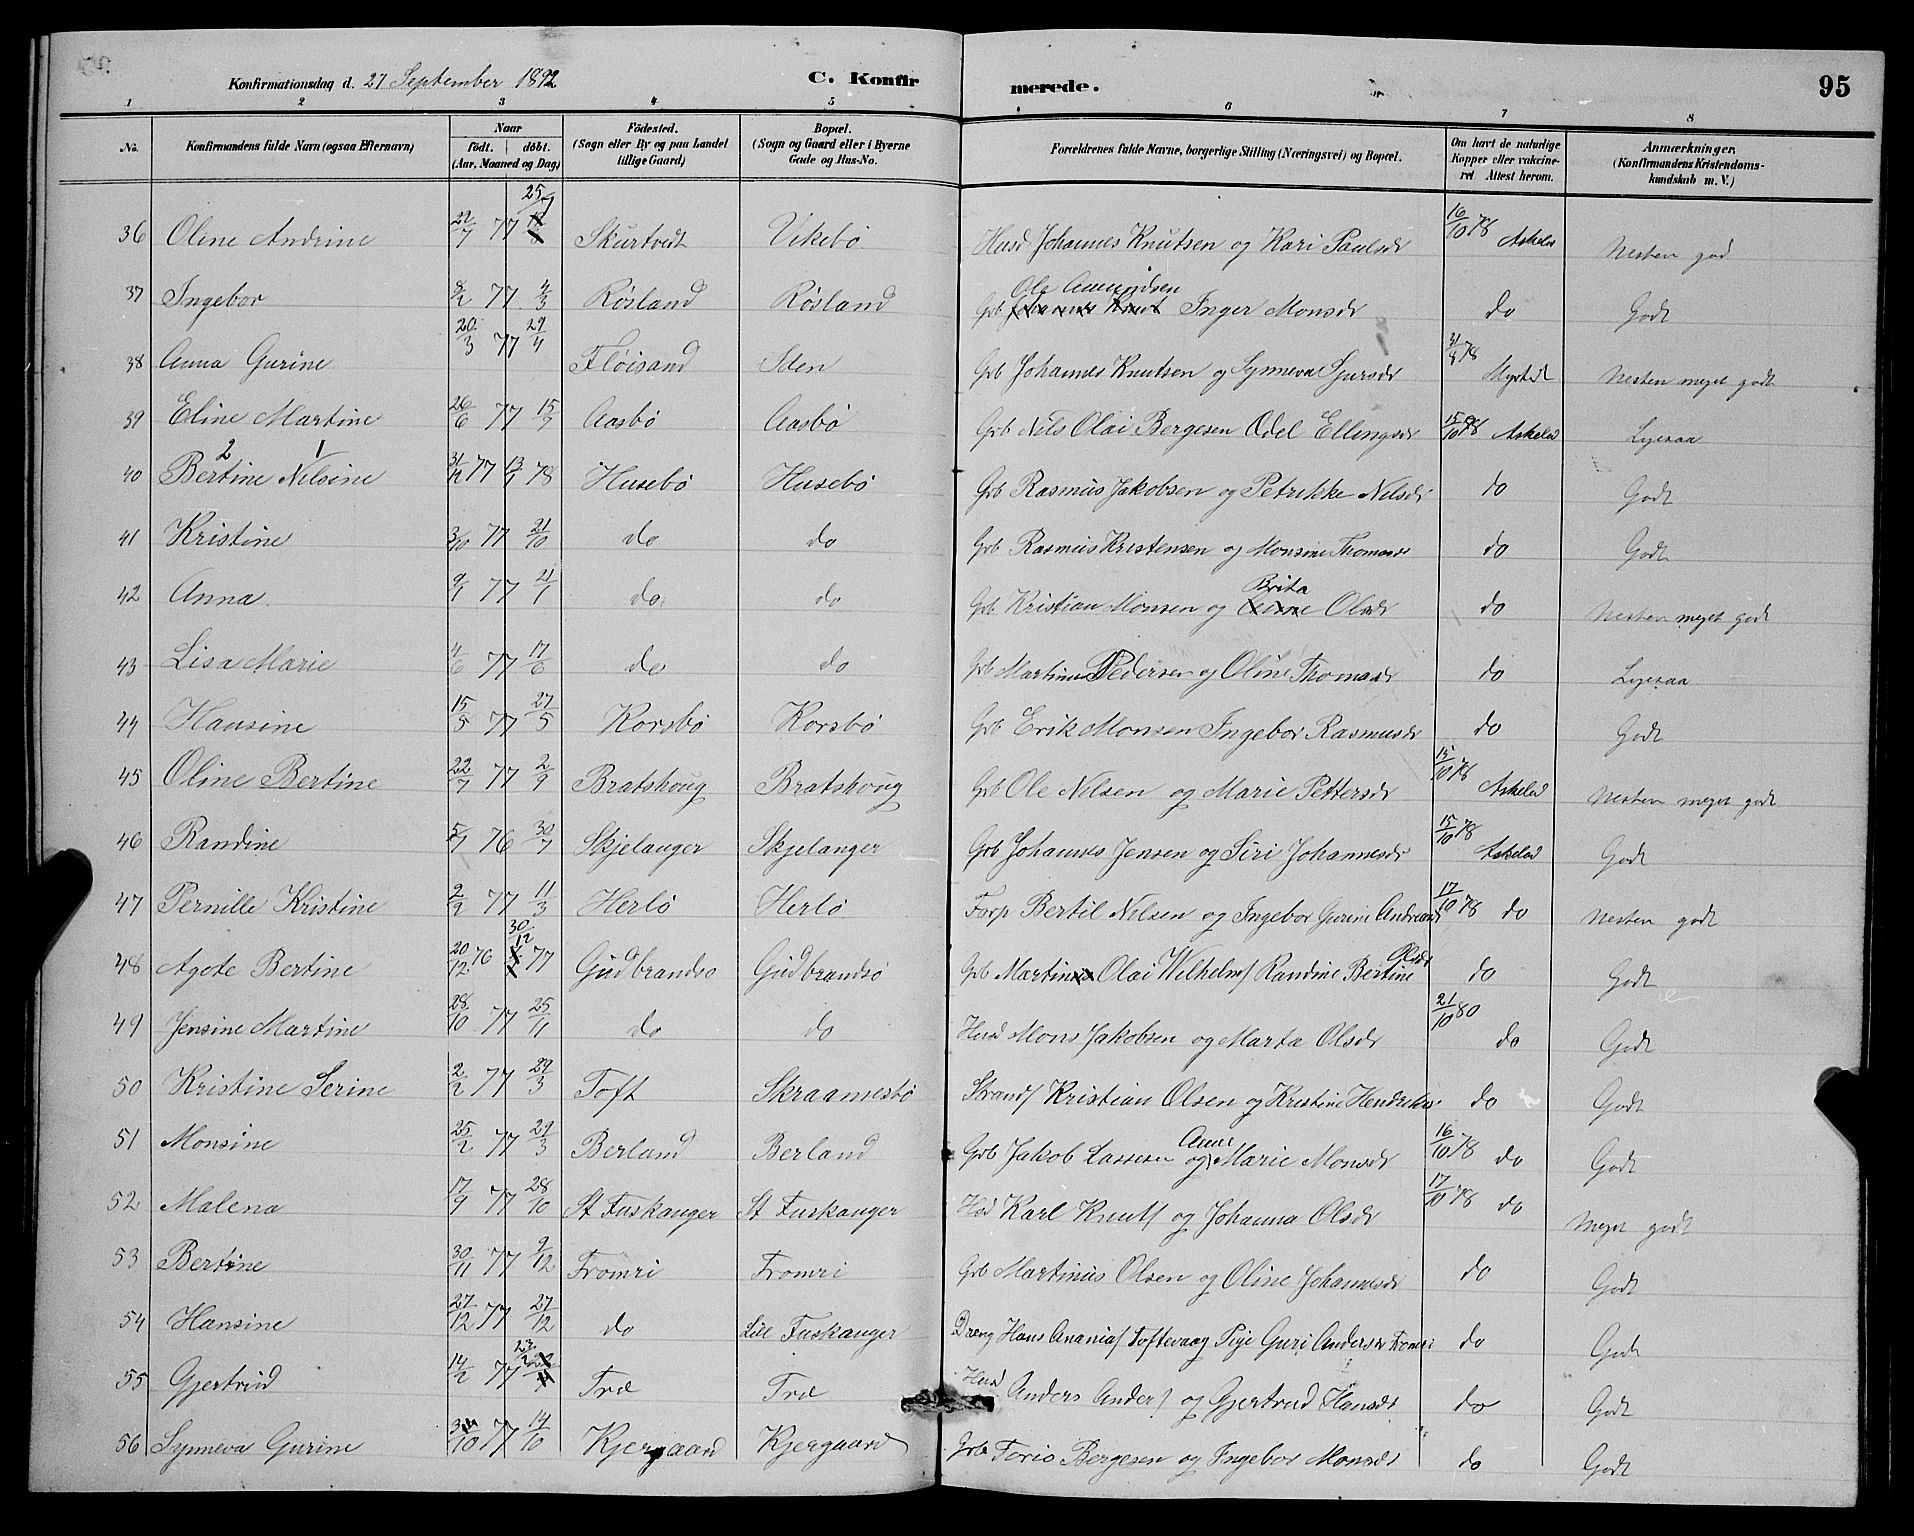 Konfirmationsdag d. 27 September 1892 C. Konfirmerede. 95
1 2 3 4 5 6 7 8
No. Konfirmandens fulde Navn (ogsaa Efternavn) Naar født. døbt. (Aar, Maaned og Dag) Fødested. (Sogn eller By og paa Landet tillige Gaard) Bopæl. (Sogn og Gaard eller i Byerne Gade og Hus-No. Forældrenes fulde Navne, borgerlige Stilling (Næringsvei) og Bopæl. Om havt de naturlige Kopper eller vakcineret Attest herom. Anmærkninger. (Konfirmandens Kristendomskundskab m. V.)
36 Oline Andrine 22/7 77 25/7 Skurtvedt Vikebø Husd Johannes Knutsen og Kari Paulsdr 16/10 78 Askelad Nesten god
37 Ingebor 8/2 77 4/3 Røsland Røsland Grb Ole Amundsen Inger Monsdr do Godt
38 Anna Gurine 20/3 77 29/4 Fløisand Sten Grb Johannes Knutsen og Synneva Sjursdr 31/8 78 Nesten meget godt
39 Eline Martine 26/6 77 15/7 Aasbø Aasbø Grb Nils Olai Bergesen Odel Ellingsdr 15/10 78 Askelad Lyesaa
40 Bertine 2 Nilsine 1 31/12 77 13/1 78 Husebø Husebø Grb Rasmus Jakobsen og Petrikke Nilsdr do Godt
41 Kristine 3/10 77 21/10 do do Grb Rasmus Kristensen og Monsine Thomasdr do Godt
42 Anna 9/1 77 21/1 do do Grb Kristian Monsen og Brita Olsdr do Nesten meget godt
43 Lisa Marie 4/6 77 17/6 do do Grb Martinus Pedersen og Oline Thomasdr do Lyesaa
44 Hansine 15/5 77 27/5 Korsbø Korsbø Grb Erik Monsen Ingebor Rasmusdr do Godt
45 Oline Bertine 22/7 77 2/9 Bratshoug Bratshoug Grb Ole Nilsen og Marie Pettersdr 15/10 78 Askelad Nesten meget godt
46 Randine 5/7 76 30/7 Skjelanger Skjelanger Grb Johannes Jensen og Siri Johannesdr 15/10 78 Askelad Godt
47 Pernille Kristine 2/2 77 11/3 Herlø Herlø Forp Bertil Nilsen og Ingebor Gurine Andreasd 17/10 78 do Nesten godt
48 Agote Bertine 20/12 76 30/12 77 Gudbrandsø Gudbrandsø Grb Martin Olai Wilhelms/ Randine Bertine Olsdr do Godt
49 Jensine Martine 28/10 77 25/11 do do Husd Mons Jakobsen og Marta Olsdr 21/10 80 do Godt
50 Kristine Serine 2/2 77 29/3 Toft Skraamestø Strands/ Kristian Olsen og Kristine Hendriks do Godt
51 Monsine 25/2 77 29/3 Berland Berland Grb Jakob Lassesen og Anne Marie Monsdr 16/10 78 do Godt
52 Malena 17/9 77 28/10 St Fuskanger St Fuskanger Hsd Karl Knuts/ og Johanna Olsdr 17/10 78 do Meget godt
53 Bertine 30/11 77 9/12 Fromri Fromri Grb Martinus Olsen og Oline Johannesdr do Godt
54 Hansine 27/12 77 27/12 do Lill Fuskanger Dreng Hans Ananias/ Toftevaag Pige Guri Andersdr Fromri do Godt
55 Gjertrud 14/2 77 23/2 Træ Træ Husd Anders Anders/ og Gjertrud Hansdr do Godt
56 Synneva Gurine 77 14/10 Kjergaard Kjergaard Grb Toris Bergesen og Ingebor Monsdr do Godt